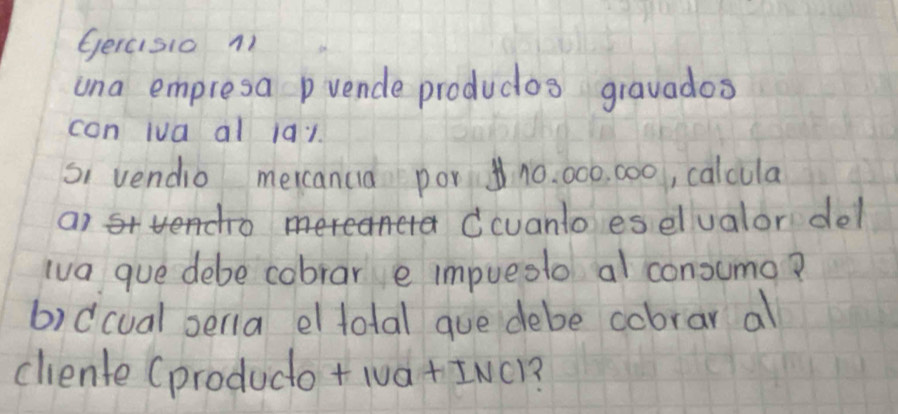 Ejercisio 1)
una empresa p vende productos gravados
con iva al 19%.
Si vendio mercancia por $ 10.000.000, calcula
a) si vendio mercancia ¿cuanto es el valor del
iva que debe cobrar e impuesto al consumo?
b) ¿cual seria el total que debe cobrar al
cliente (producto + iva + INC)?